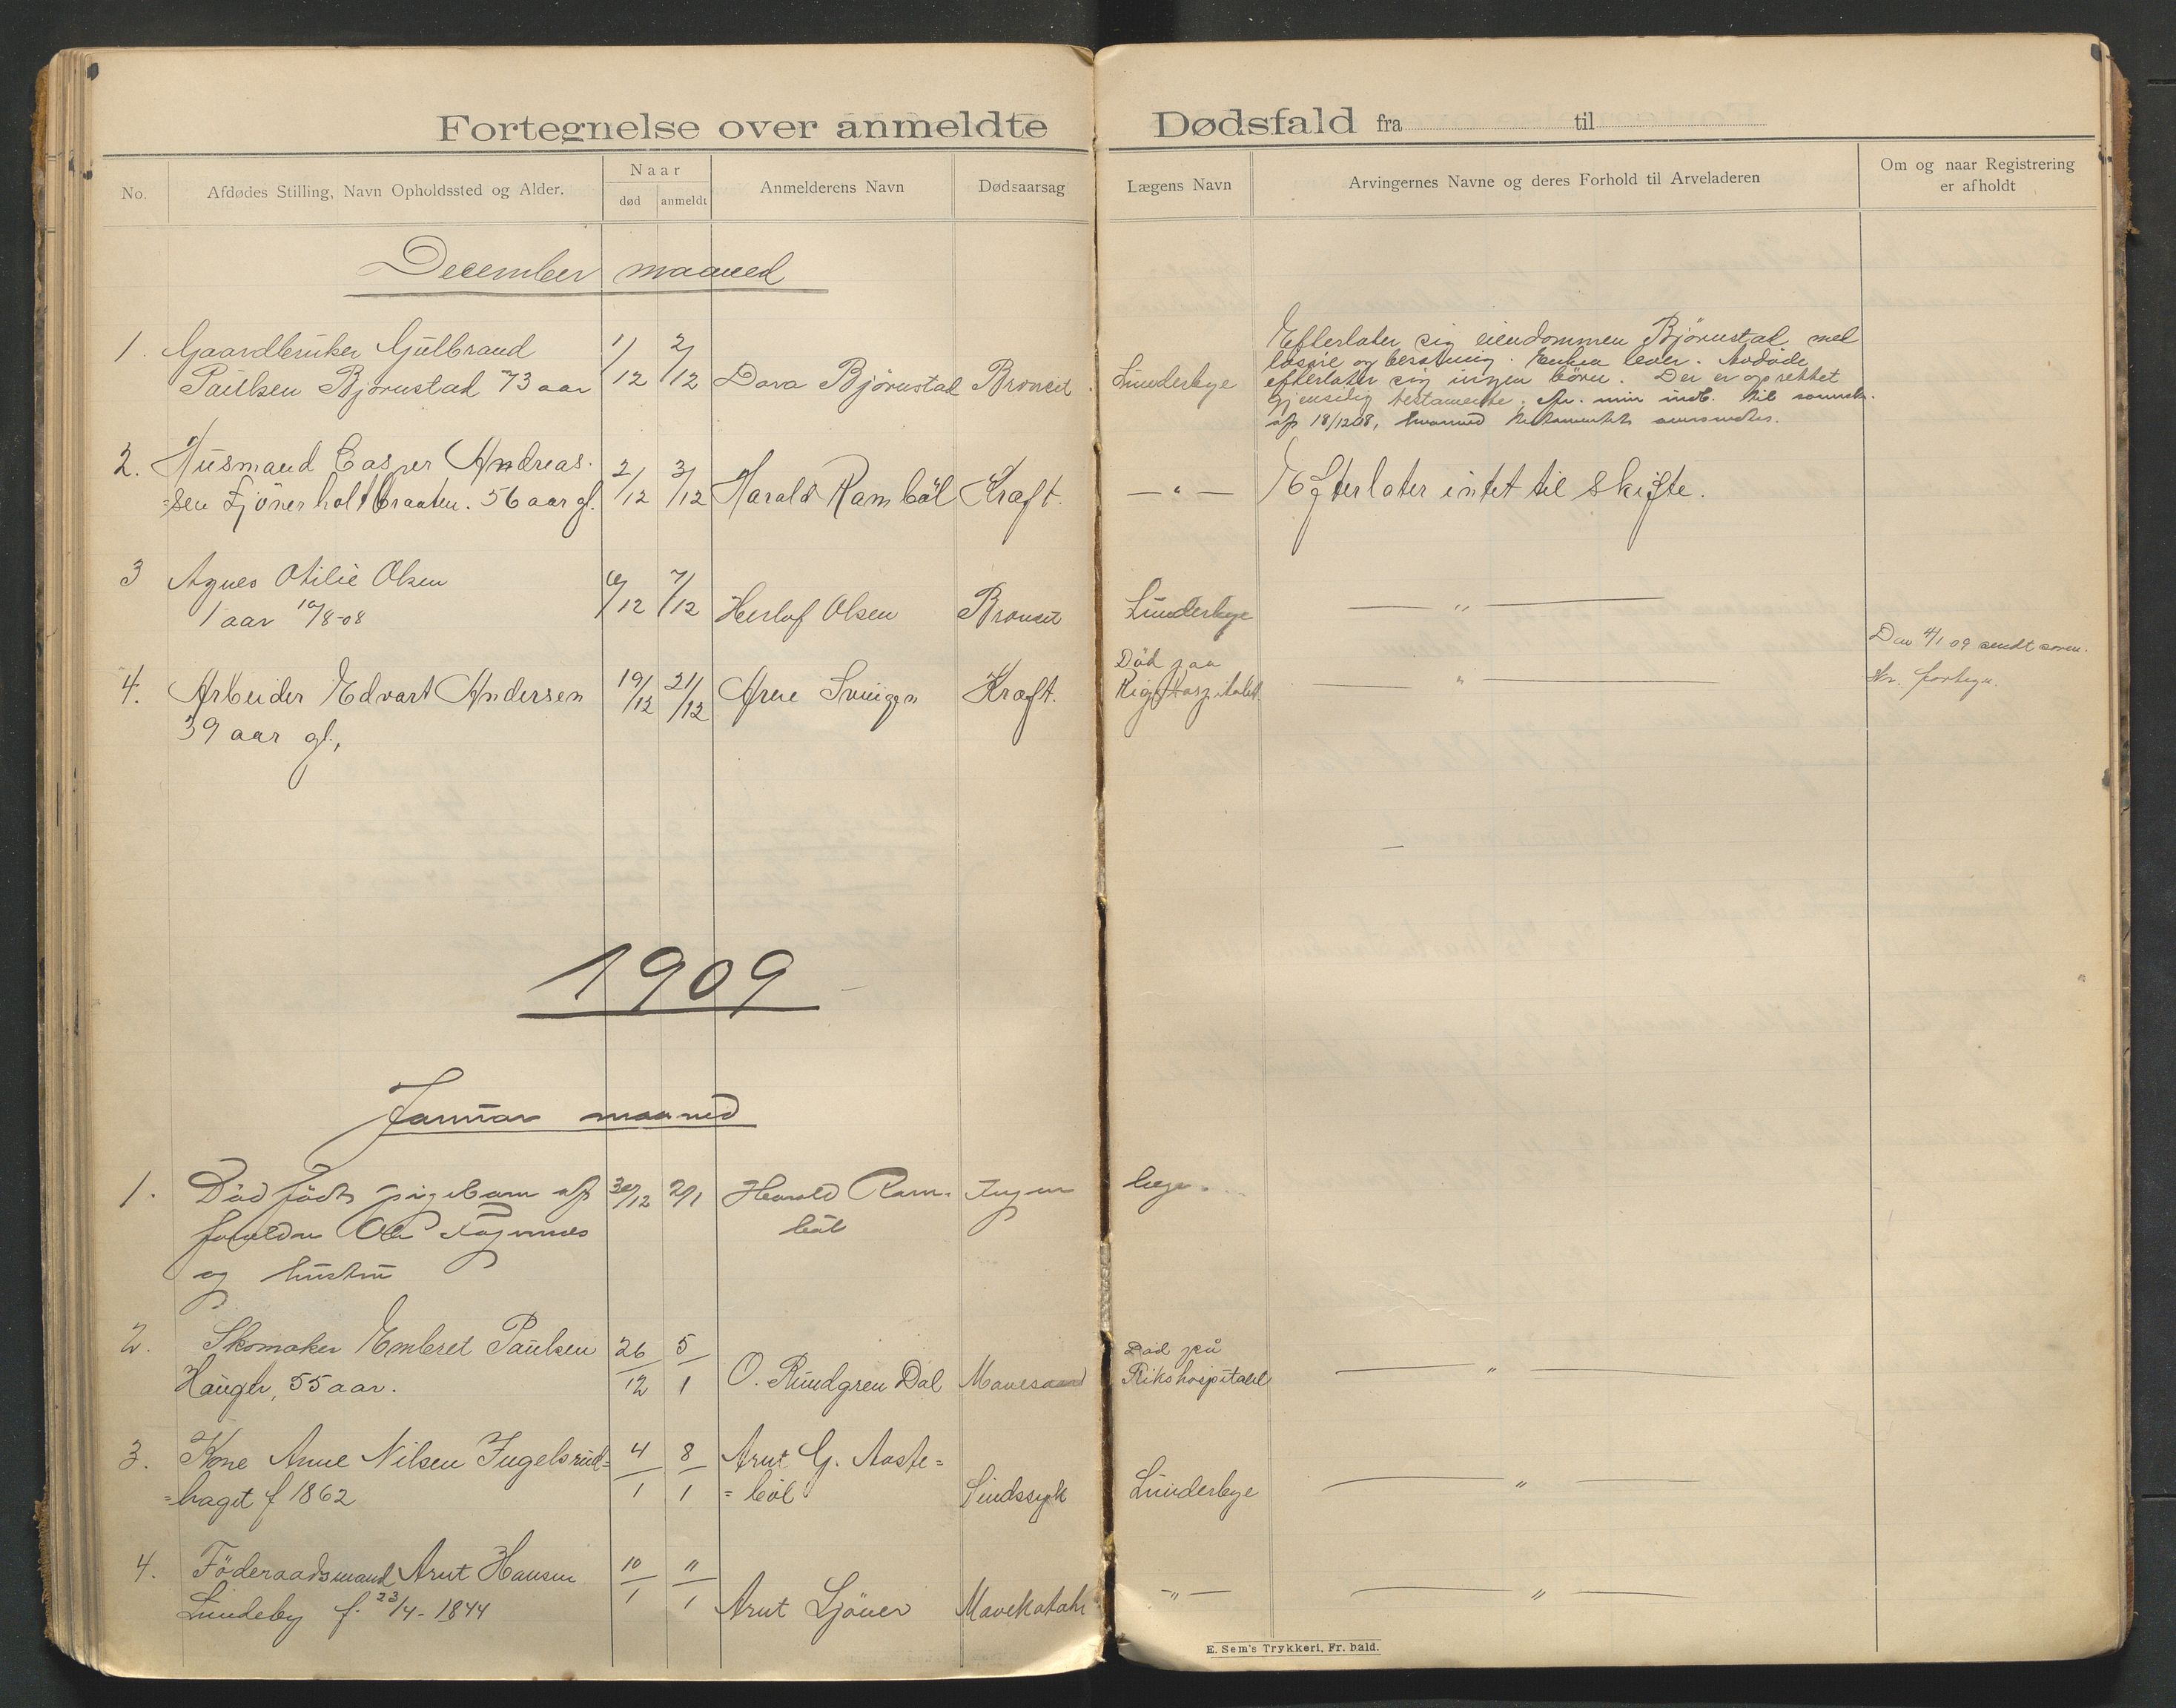 Fortegnelse over anmeldte Dødsfald fra til
No.
Afdødes Stilling, Navn Opholdssted og Alder.
Naar
død
anmeldt
Anmelderens Navn
Dødsaarsag
Lægens Navn
Arvingernes Navne og deres Forhold til Arveladeren
Om og naar Registrering
er afholdt
December maaned
1. Gaardbruker Gulbrand
Paulsen Bjørnustad 73 aar
1/12 2/12 Dora Bjørnustad Broncit. Lunderbye
Efterlater sig eiendommen Bjørnustad med
løsøre og besætning. Enken lever. Avdøde
efterlater sig ingen børn. Der er oprettet
gjensidig testamente, min indb. til
af 18/12 08, hvormed testamentet
2. Husmand Casper Andreas-
=sen Fjönerholtbraaten. 56 aar gl.
2/12 3/12 Harald Ramböl Kræft. — " —
Efterlater intet til skifte.
3 Agnes Otilie Olsen
1 aar 10/8-08
6/12 7/12 Herlof Olsen Broncit Lunderbye — " —
4. Arbeider Edvart Andersen
39 aar gl,
19/12 21/12 Arne Kræft.
Død paa
Rigshospitalet. — " —
Den 4/1 09 sendt soren.
skr. fortegn.
1909
Januar maaned
1. Död födt pigebarn af
foreldre Ole
og hustru
30/12 2/1 Harald Ram-
böl
Ingen læge.
2. Skomaker Embret Paulsen
Hauger, 55 aar.
26/12 5/1 O. Rundgren Dal
Død på
Rikshospitalet — " —
3. Kone Anne Nilsen Ingelsrud=
=haget f 1862
4/1 8/1 Arnt G. Aaste=
=böl
Sindssyk Lunderbye — " —
4. Föderaadsmand Arnt Hansen
Lundeby f. 23/4-1844
10/1 11/1 Arnt Ljöner Mavekatarh — " — — " —
E. Sem's Trykkeri, Fr. hald.